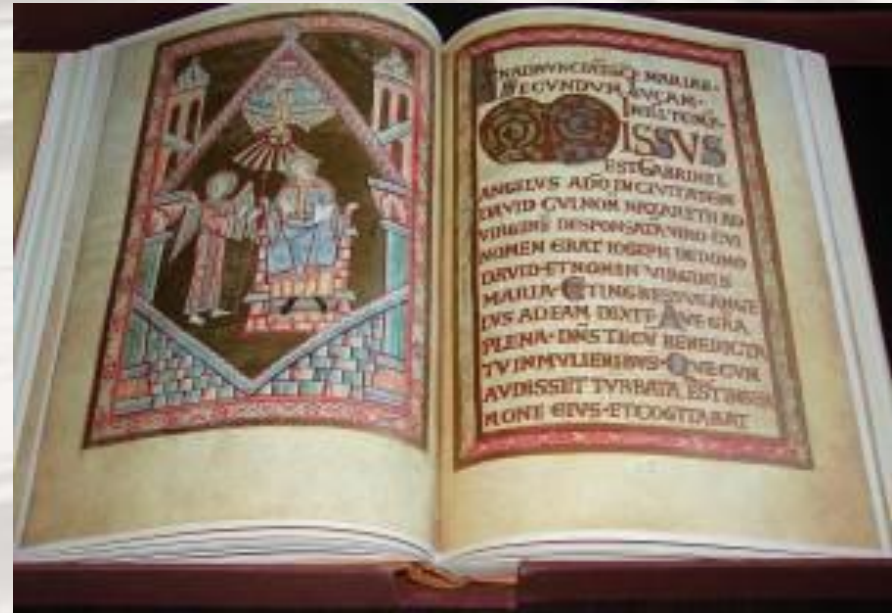 IN ADNVNCIATIONE MARIAE·
SECVNDVM LVCAM·
IN ILL TEMP·
MISSVS
EST GABRIHEL
ANGELVS A DO IN CIVITATEM
DAVID CVI NOM NAZARETH AD
VIRGINE DESPONSATA VIRO CVI
NOMEN ERAT IOSEPH DE DOMO
DAVID·ET NOMEN VIRGINIS
MARIA·ET INGRESSVS ANGE
LVS AD EAM DIXIT·AVE GRA
PLENA·DNS TECV BENEDICTA
TV IN MVLIERIBVS·QVE CVM
AVDISSET TVRBATA EST IN
MONE EIVS·ET COGITABAT